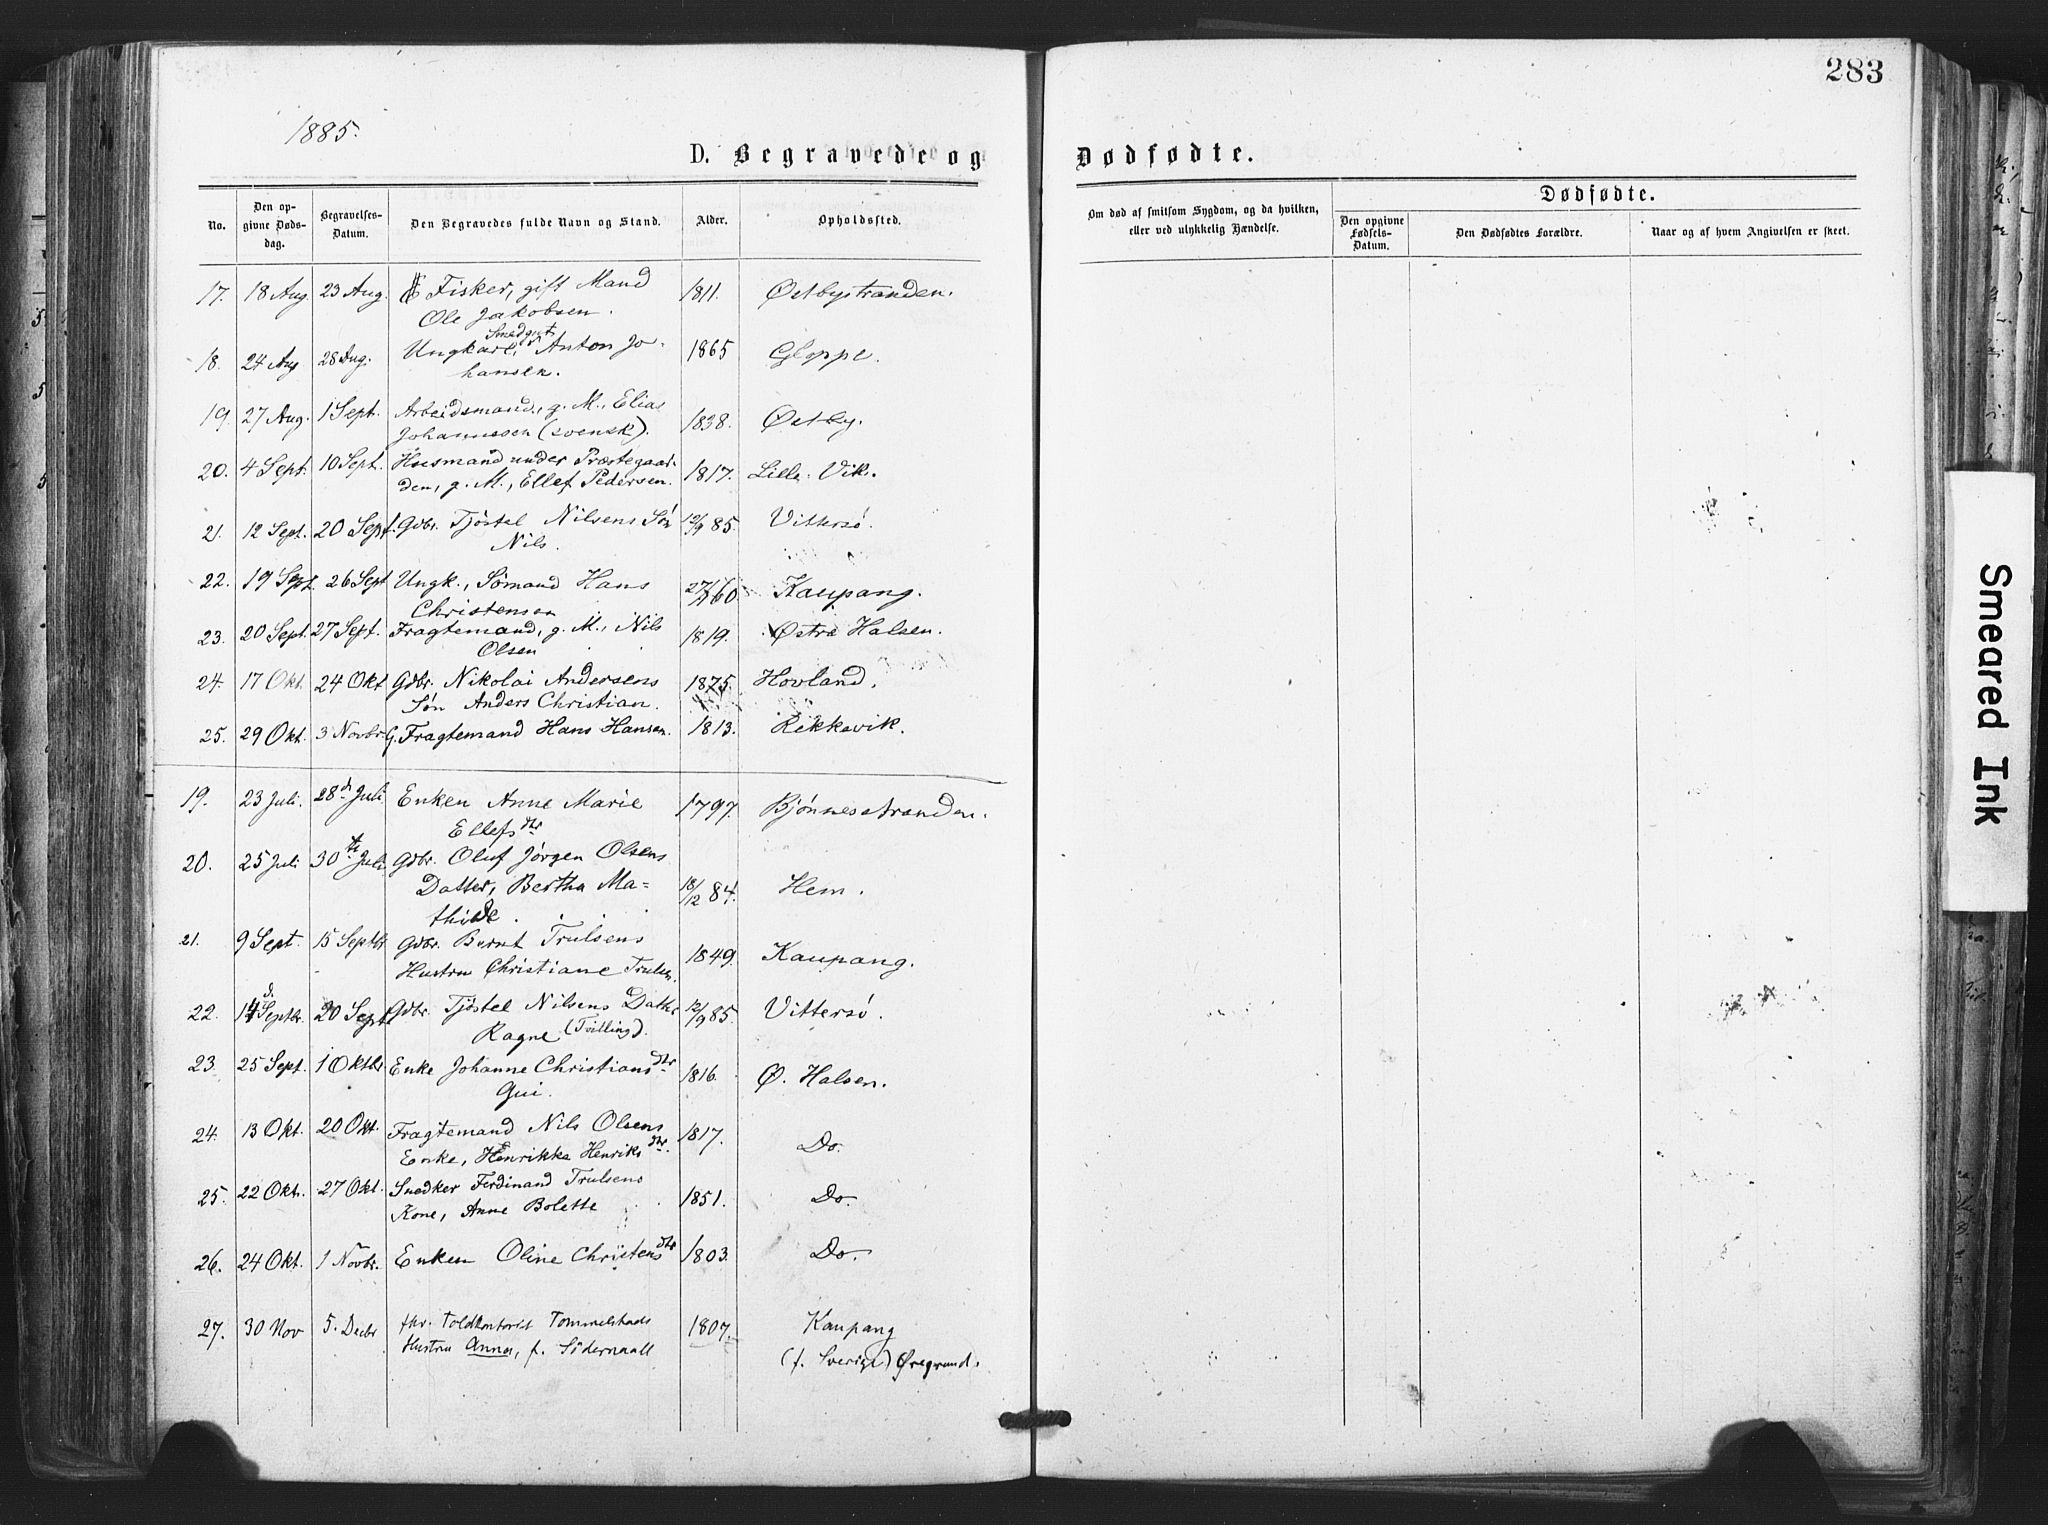 283
1885.
D. Begravede og Dødfødte.
Dødfødte.
No.
Den op-
givne Døds-
dag.
Begravelses-
Datum.
Den Begravedes fulde Navn og Stand.
Alder.
Opholdssted.
Om død af smitsom Sygdom, og da hvilken,
eller ved ulykkelig Hændelse.
Den opgivne
Fødsels-
Datum.
Den Dødfødtes Forældre.
Naar og af hvem Angivelsen er skeet.
17. 18 Aug. 23 Aug. Fisker, gift Mand 1811. Østbystranden.
Ole Jakobsen.
Smedgut
18. 24 Aug 28 Aug. Ungkarl, Anton Jo- 1865 Gloppe.
hansen.
19. 27 Aug. 1 Sept. Arbeidsmand, g. M., Elias 1838. Østby.
Johannessen (svensk).
20. 4 Sept. 10 Sept. Husmand under Præstegaar- 1817. Lille-Vik.
den, g. M., Ellef Pedersen.
21. 12 Sept. 20 Sept. Gdbr. Tjøstel Nilsens Søn 12/9 85. Vittersø.
Nils.
22. 19 Sept. 26 Sept Ungk., Sømand Hans 60. Kaupang.
Christensen
23. 20 Sept. 27 Sept. Fragtemand, g. M., Nils 1819. Østre Halsen.
Olsen
24. 17 Okt. 24 Okt Gdbr. Nikolai Andersens 1875. Hovland.
Søn Anders Christian.
25. 29 Okt. 3 Novbr. G. Fragtemand Hans Hansen. 1813. Rekkevik.
19. 23 Juli. 28d Juli Enken Anne Marie 1797. Bjønnesstranden.
Ellefsdtr
20. 25 Juli 30te Juli Gdbr. Oluf Jørgen Olsens
Datter, Bertha Ma- 18/12 84. Hem.
thilde.
21. 9 Sept. 15 Septbr. Gdbr. Bernt Trulsens
Hustru Christiane Trulsen. 1849. Kaupang.
22. 14d. Septbr. 20 Sept. Gdbr. Tjøstel Nilsens Datter 12/9 85. Vittersø.
Ragne (Tvilling).
23. 25 Sept. 1 Oktbr. Enke Johanne Christiansdtr 1816. Ø. Halsen.
Gui.
24. 13 Okt. 20 Okt. Fragtemand Nils Olsens 1817. Do.
Enke, Henrikke Henriksdtr.
25. 22 Okt. 27 Okt. Snedker Ferdinand Trulsens 1851. Do.
Kone, Anne Bolette
26. 24 Okt. 1 Novbr. Enken Oline Christensdtr 1803. Do.
27. 30 Nov 5. Decbr fhv. Toldkontorist Tommelstads 1807. Kaupang
Hustru Anna, f. Södernaall (f. Sverige) Øregrund.
Smeared Ink